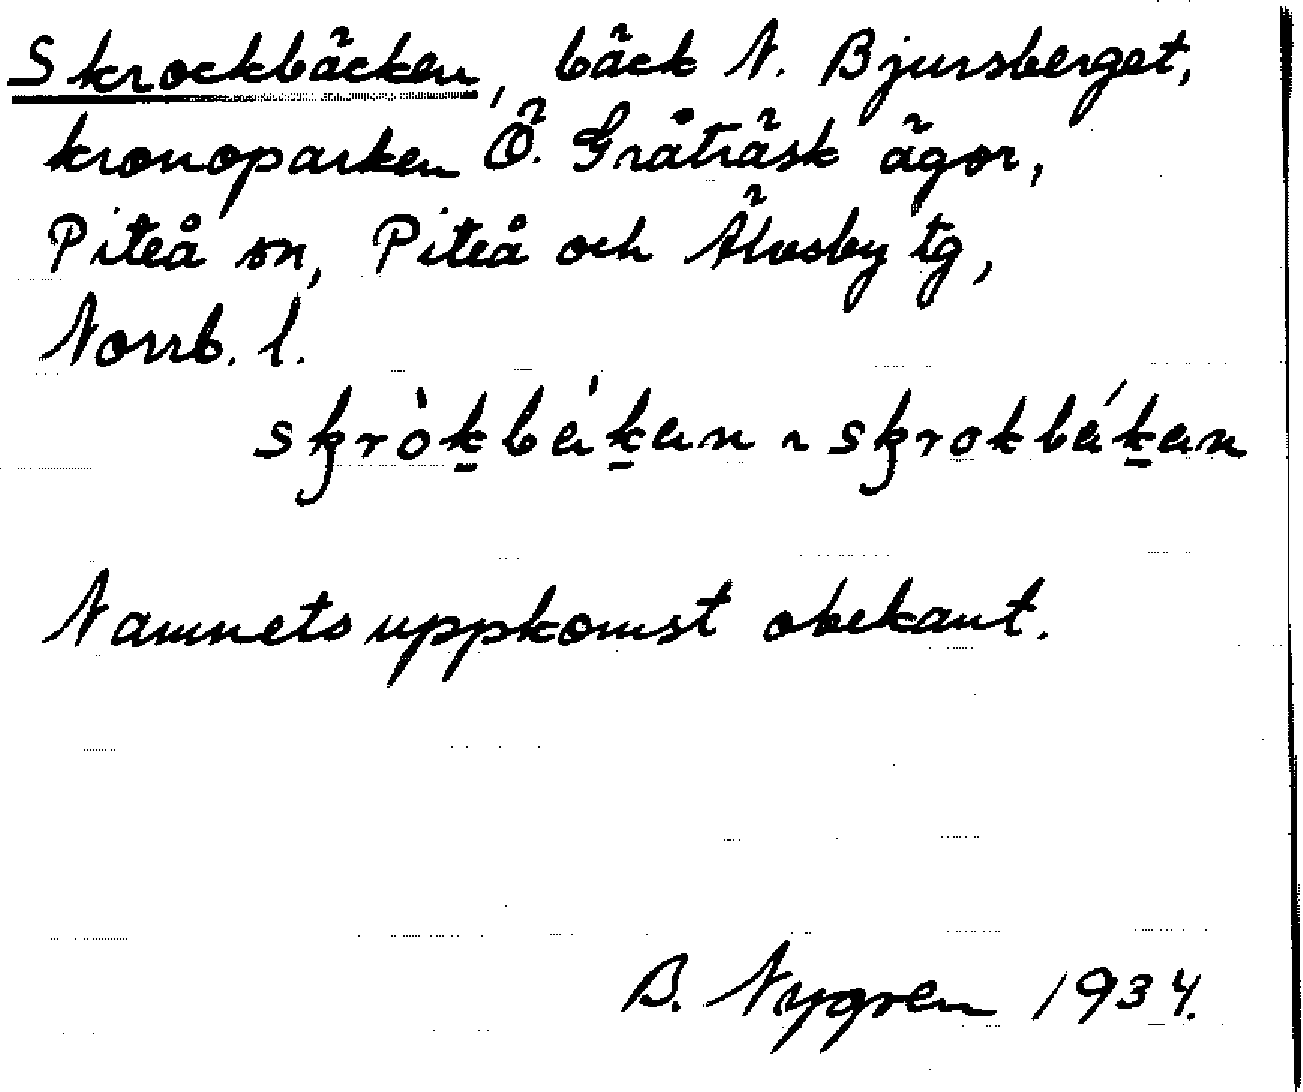 Skrockbäcken, bäck N. Bjursberget,
kronoparken Ö. Gråträsk ägor,
Piteå sn, Piteå och Älvsby tg,
Norrb. l.
skròk̲bék̲en ~ skrokbék̲en
Namnets uppkomst obekant.
B. Nygren 1934.